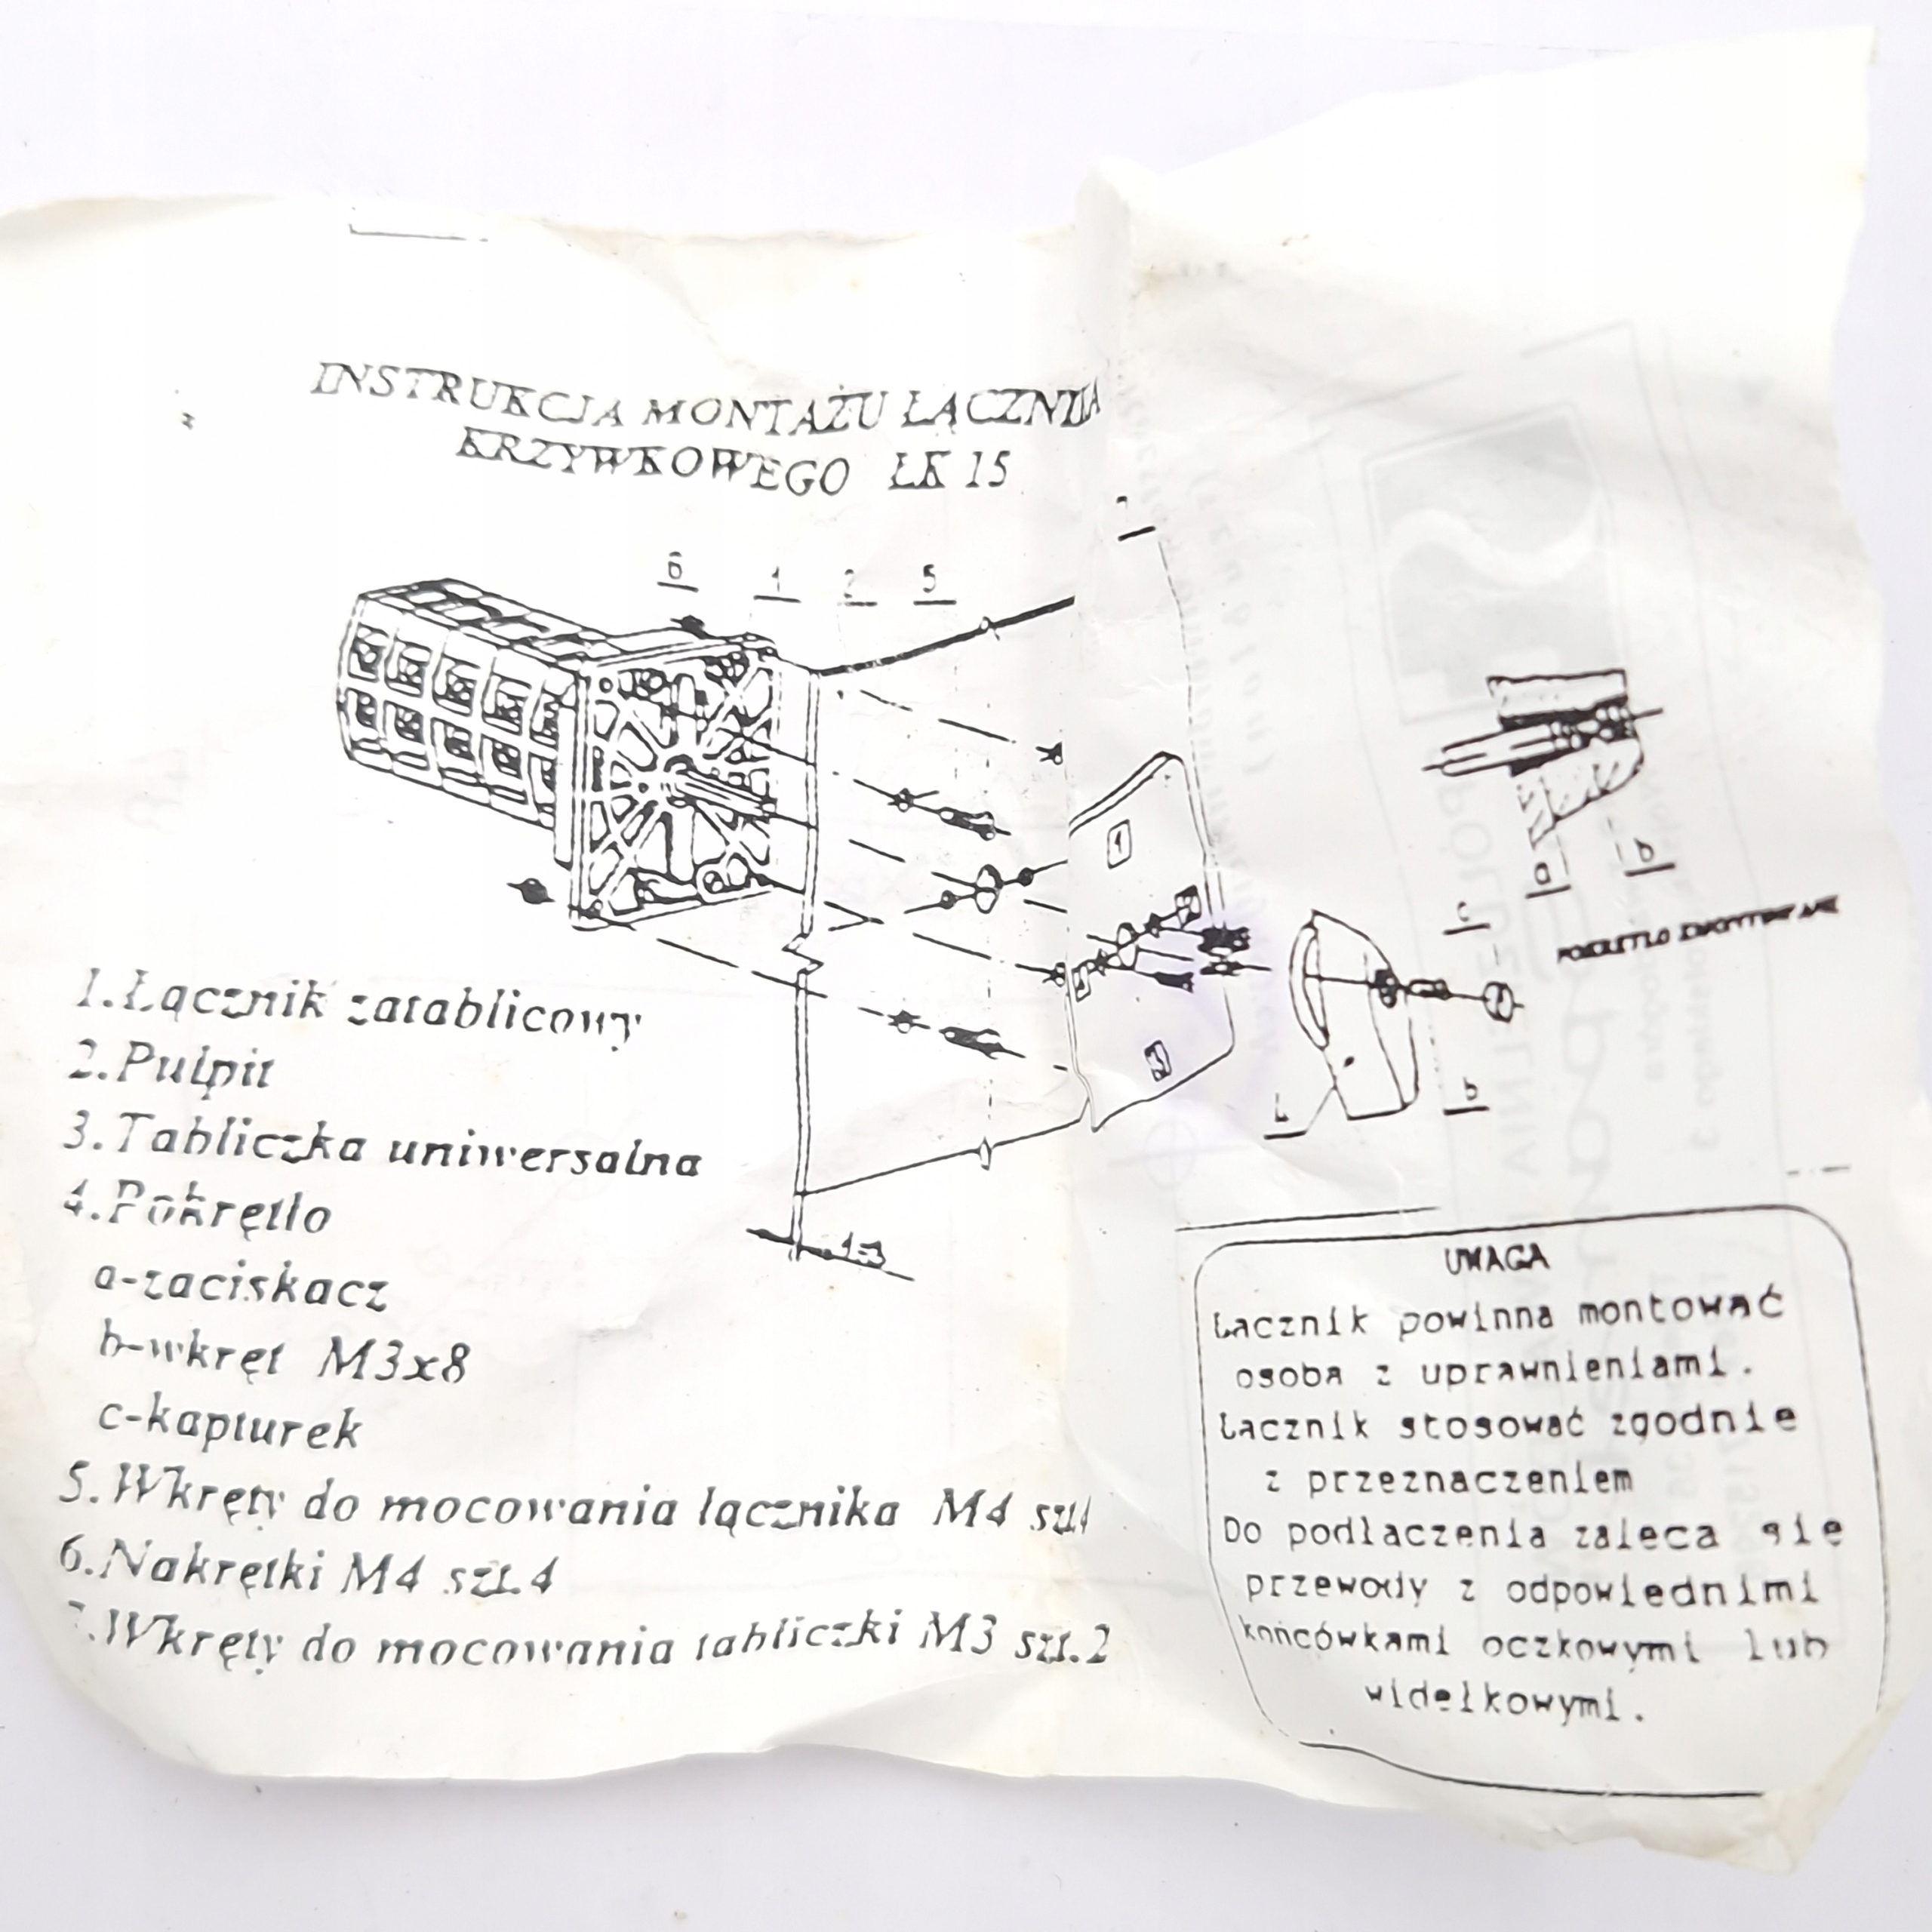 INSTRUKCJA MONTAŻU ŁĄCZNIKA
KRZYWKOWEGO ŁK 15
6 1 2 5
1
a b
c
POKRĘTŁO ZMONTOWANE
b
1-3
1.Łącznik zatablicowy
2.Pulpit
3.Tabliczka uniwersalna
4.Pokrętło
a-zaciskacz
b-wkręt M3x8
c-kapturek
5.Wkręty do mocowania łącznika M4 szt.4
6.Nakrętki M4 szt.4
7.Wkręty do mocowania tabliczki M3 szt.2
UWAGA
Łacznik powinna montować
osoba z uprawnieniami.
Łacznik stosować zgodnie
z przeznaczeniem
Do podłaczenia zaleca sie
przewody z odpowiednimi
końcówkami oczkowymi lub
widełkowymi.